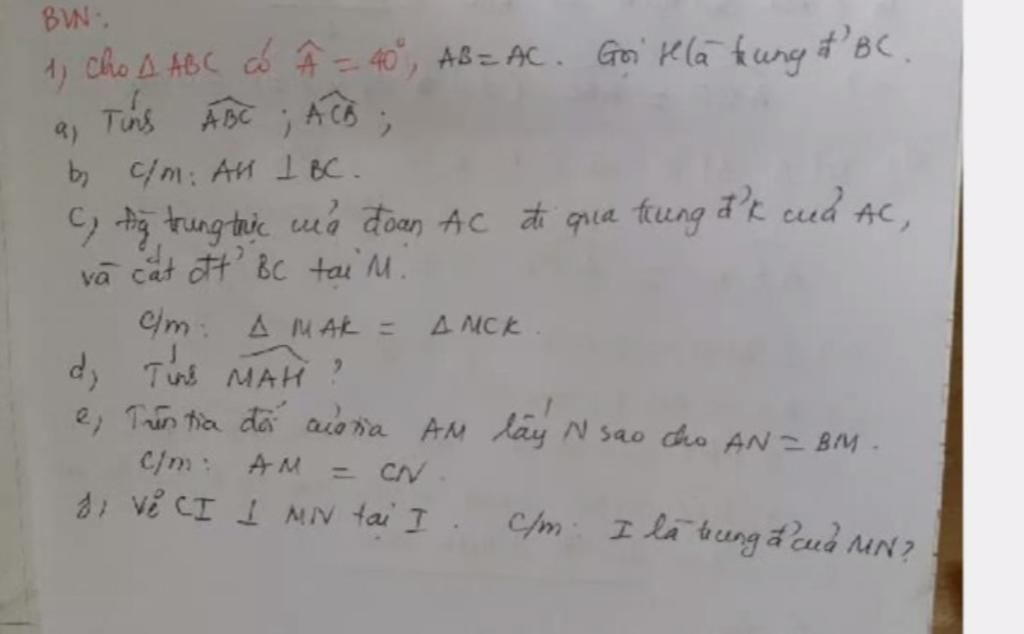 BVN:
1, Cho Δ ABC có Â = 40°, AB = AC. Gọi H là trung đ' BC.
a, Tính ABC ; ACB ;
b, C/m: AH ⊥ BC.
c, Đg trung trực của đoạn AC đi qua trung đ' K của AC,
và cắt đt' BC tại M.
C/m: Δ MAK = Δ MCK.
d, Tính MAH ?
e, Trên tia đối của tia AM lấy N sao cho AN = BM.
C/m: AM = CN.
g, Vẽ CI ⊥ MN tại I. C/m: I là trung đ' của MN?